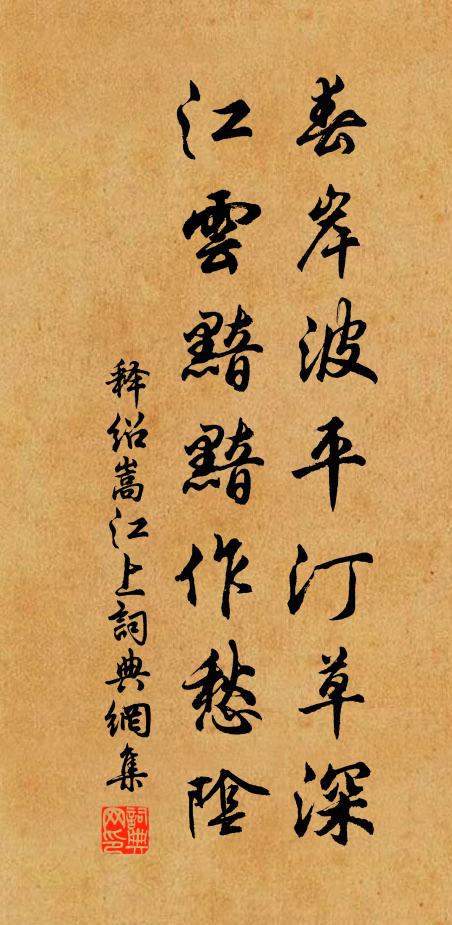 春岸波平汀草深
江雲黯黯作愁陰
释绍嵩江上詞典網集
詞典网印